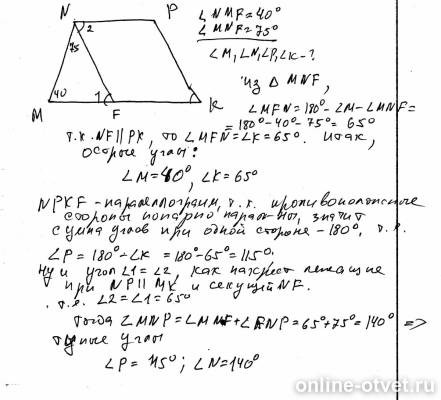 N P
2
75
40 1
M F K
∠NMF=40°
∠MNF=75°
∠M, ∠N, ∠P, ∠K - ?
Из △ MNF,
∠MFN=180°-∠M-∠MNF=
=180°-40°-75°=65°
т.к. NF||PK, то ∠MFN=∠K=65°. Итак,
острые углы:
∠M=40°, ∠K=65°
NPKF - параллелограмм, т.к. противоположные
стороны попарно парал-ны, значит
сумма углов при одной стороне - 180°, т.е.
∠P = 180°-∠K = 180°-65°=115°.
Ну и угол ∠1=∠2, как накрест лежащие
при NP||MK и секущей NF.
т.е. ∠2=∠1=65°
Тогда ∠MNP=∠MNF+∠FNP=65°+75°=140° =>
тупые углы
∠P = 115°; ∠N=140°
online-otvet.ru